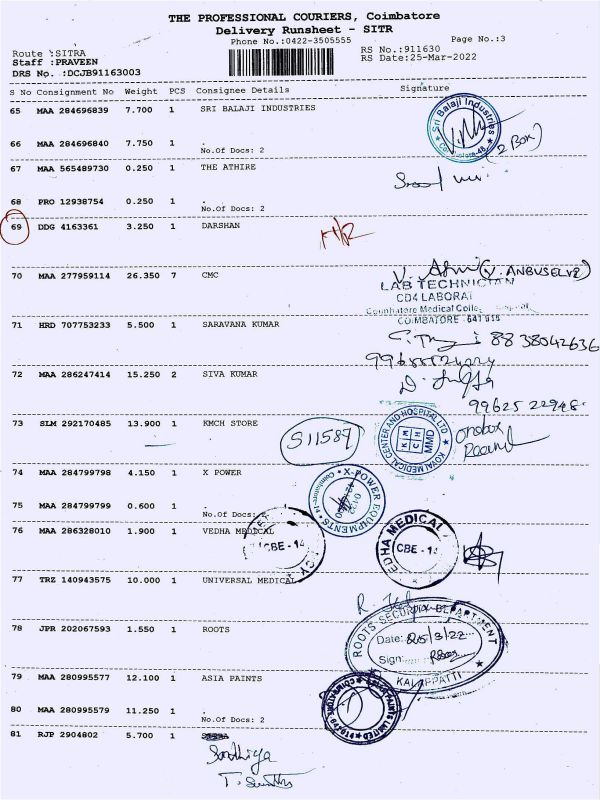 THE PROFESSIONAL COURIERS, Coimbatore
Delivery Runsheet - SITR
Phone No.:0422-3505555
Page No.:3
Route :SITRA
RS No.:911630
Staff :PRAVEEN
RS Date:25-Mar-2022
DRS No. :DCJB91163003
S No Consignment No Weight PCS Consignee Details Signature
65 MAA 284696839 7.700 1 SRI BALAJI INDUSTRIES
Sri Balaji Industries
66 MAA 284696840 7.750 1
(2 Box)
No.Of Docs: 2
67 MAA 565489730 0.250 1 THE ATHIRE
68 PRO 12938754 0.250 1
No.Of Docs: 2
69 DDG 4163361 3.250 1 DARSHAN
70 MAA 277959114 26.350 7 CMC
LAB TECHNICIAN
CD4 LABORAT
Coimbatore Medical College Hospital
COIMBATORE - 641 018
71 HRD 707753233 5.500 1 SARAVANA KUMAR
88 38042636
72 MAA 286247414 15.250 2 SIVA KUMAR
99625 22948
73 SLM 292170485 13.900 1 KMCH STORE
S11589
KOVAI MEDICAL CENTER AND HOSPITAL LTD
KMCH
MMD
74 MAA 284799798 4.150 1 X POWER
X-POWER EQUIPMENTS
Coimbatore-14
75 MAA 284799799 0.600 1
No.Of Docs: 2
76 MAA 286328010 1.900 1 VEDHA MEDICAL
CBE - 14
VEDHA MEDICAL
CBE - 14
77 TRZ 140943575 10.000 1 UNIVERSAL MEDICAL
78 JPR 202067593 1.550 1 ROOTS
ROOTS SECURITY DEPARTMENT
Date: 25/3/22
Sign:
KALAPPATTI
79 MAA 280995577 12.100 1 ASIA PAINTS
80 MAA 280995579 11.250 1
No.Of Docs: 2
81 RJP 2904802 5.700 1
Sandhiya